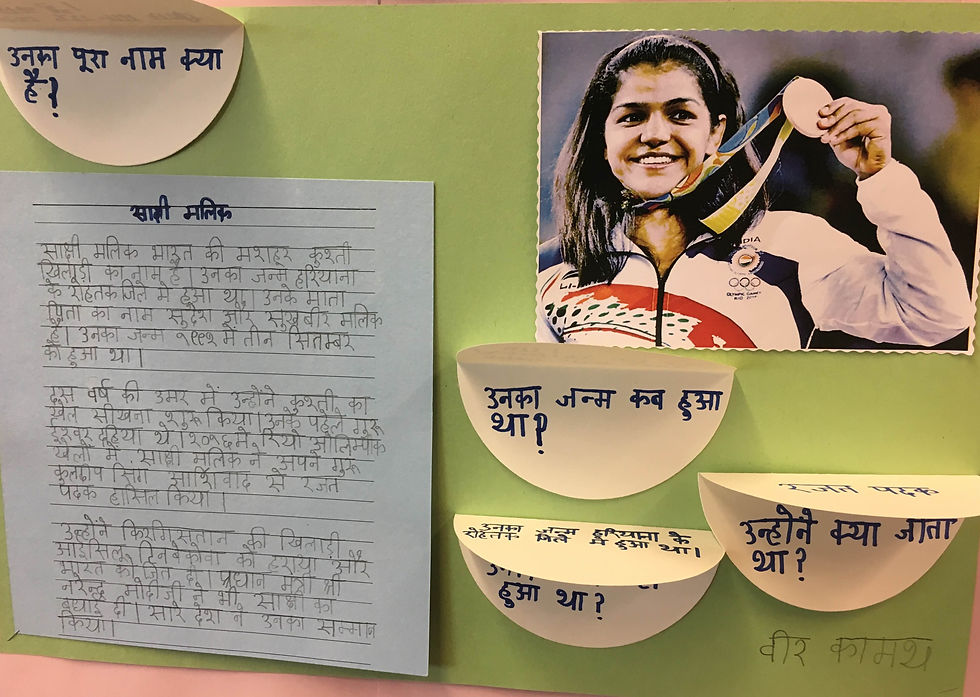 उनका पूरा नाम क्या
है?
साक्षी मलिक
साक्षी मलिक भारत की मशहूर कुश्ती
खिलाड़ी का नाम है। उनका जन्म हरियाना
के रोहतक जिले में हुआ था। उनके माता
पिता का नाम सुदेश और सुखबीर मलिक
है। उनका जन्म १९९२ में तीन सितम्बर
को हुआ था।
दस वर्ष की उमर में उन्होंने कुश्ती का
खेल सीखना शुरू किया। उनके पहले गुरू
ईश्वर दहिया थे। २०१६ में रियो ओलिम्पीक
खेलों में साक्षी मलिक ने अपने गुरू
कुलदीप सिंग आर्शिवाद से रजत
पदक हासिल किया।
उन्होने किरगिस्तान की खिलाड़ी
को हराया और
भारत को जित दी। प्रधान मंत्री श्री
नरेन्द्र मोदीजी ने भी साक्षी को
बधाई दी। सारे देश ने उनका सन्मान
किया।
INDIA
OLYMPIC GAMES
RIO 2016
उनका जन्म कब हुआ
था?
उनका जन्म हरियाना के
रोहतक जिले में हुआ था।
हुआ था?
रजत पदक
उन्होने क्या जीता
था?
वीर कामथ